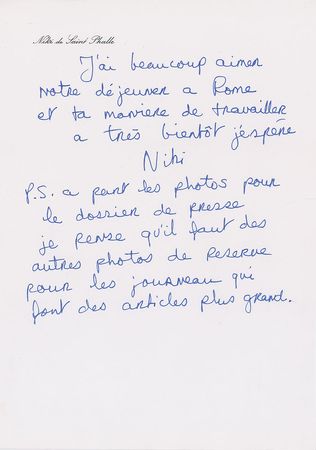 Niki de Saint Phalle
J'ai beaucoup aimer
notre déjeuner a Rome
et ta manière de travailler
a très bientôt j'espère
Niki
P.S. a part les photos pour
le dossier de presse
je pense qu'il faut des
autres photos de reserve
pour les journeau qui
font des articles plus grand.